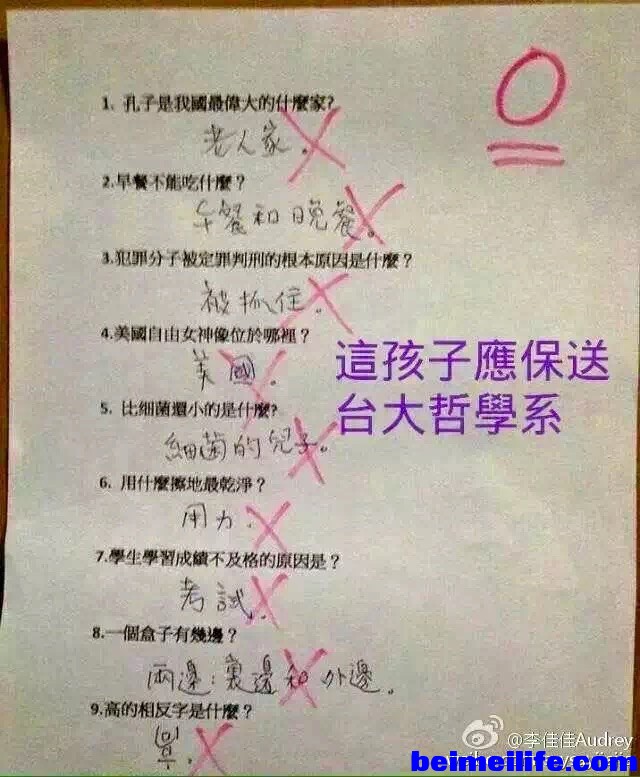 0
1、孔子是我國最偉大的什麼家?
老人家。
2.早餐不能吃什麼？
午餐和晚餐。
3.犯罪分子被定罪判刑的根本原因是什麼？
被抓住。
4.美國自由女神像位於哪裡？
美國。
這孩子應保送
台大哲學系
5. 比細菌還小的是什麼?
細菌的兒子。
6. 用什麼擦地最乾淨？
用力.
7.學生學習成績不及格的原因是？
考試.
8.一個盒子有幾邊？
兩邊：裏邊和外邊。
9.高的相反字是什麼？
@李佳佳Audrey
beimeilife.com